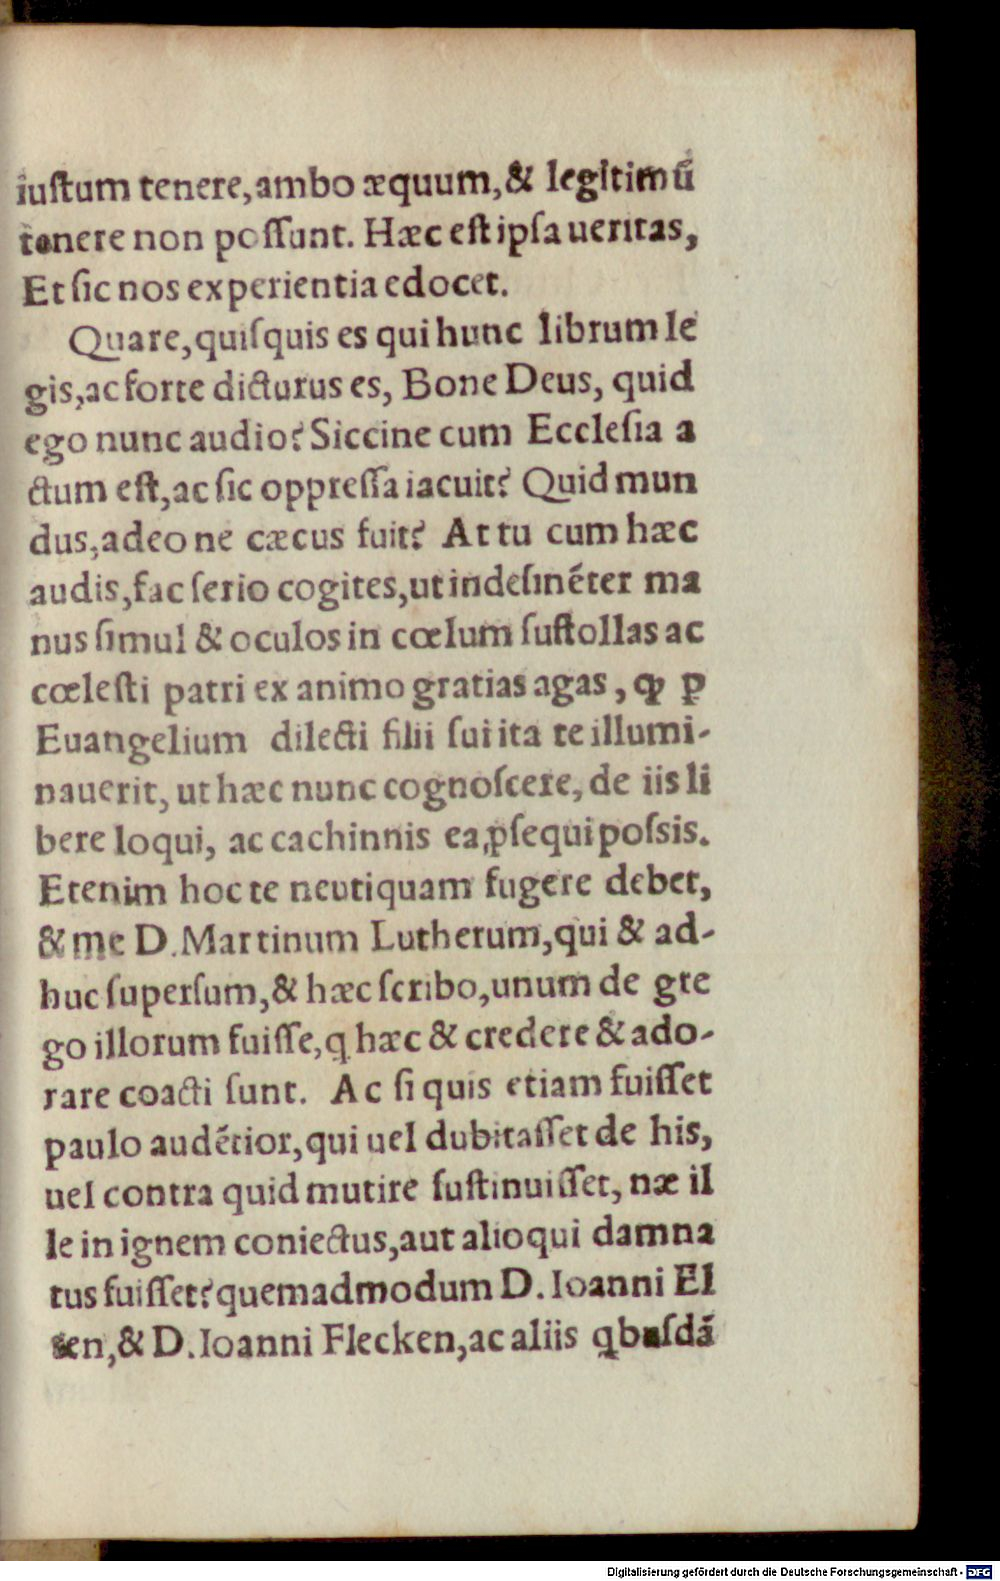 iuſtum tenere, ambo æquum, & legitimū
tenere non poſſunt. Hæc eſt ipſa ueritas,
Et ſic nos experientia edocet.
Quare, quiſquis es qui hunc librum le
gis, ac forte dicturus es, Bone Deus, quid
ego nunc audio? Siccine cum Eccleſia a
ctum eſt, ac ſic oppreſſa iacuit? Quid mun
dus, adeo ne cæcus fuit? At tu cum hæc
audis, fac ſerio cogites, ut indeſinēter ma
nus ſimul & oculos in cœlum ſuſtollas ac
cœleſti patri ex animo gratias agas, ꝙ ꝑ
Euangelium dilecti filii ſui ita te illumi-
nauerit, ut hæc nunc cognoſcere, de iis li
bere loqui, ac cachinnis ea ꝓſequi poſsis.
Etenim hoc te neutiquam fugere debet,
& me D. Martinum Lutherum, qui & ad-
huc ſuperſum, & hæc ſcribo, unum de gre
go illorum fuiſſe, ꝗ hæc & credere & ado-
rare coacti ſunt. Ac ſi quis etiam fuiſſet
paulo audētior, qui uel dubitaſſet de his,
uel contra quid mutire ſuſtinuiſſet, næ il
le in ignem coniectus, aut alioqui damna
tus fuiſſet? quemadmodum D. Ioanni El
sen, & D. Ioanni Flecken, ac aliis ꝗbuſdā
Digitalisierung gefördert durch die Deutsche Forschungsgemeinschaft - DFG